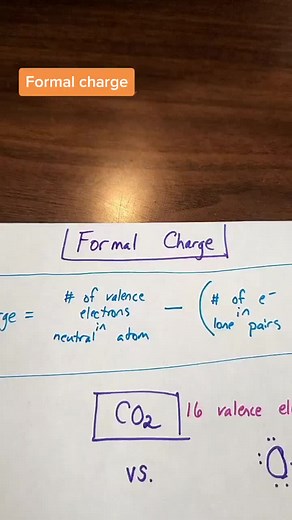 Formal charge
Formal Charge
# of valence
electrons
in
neutral atom
ge =
—
(# of e-
in
lone pairs
CO2
16 valence el
vs.
:O